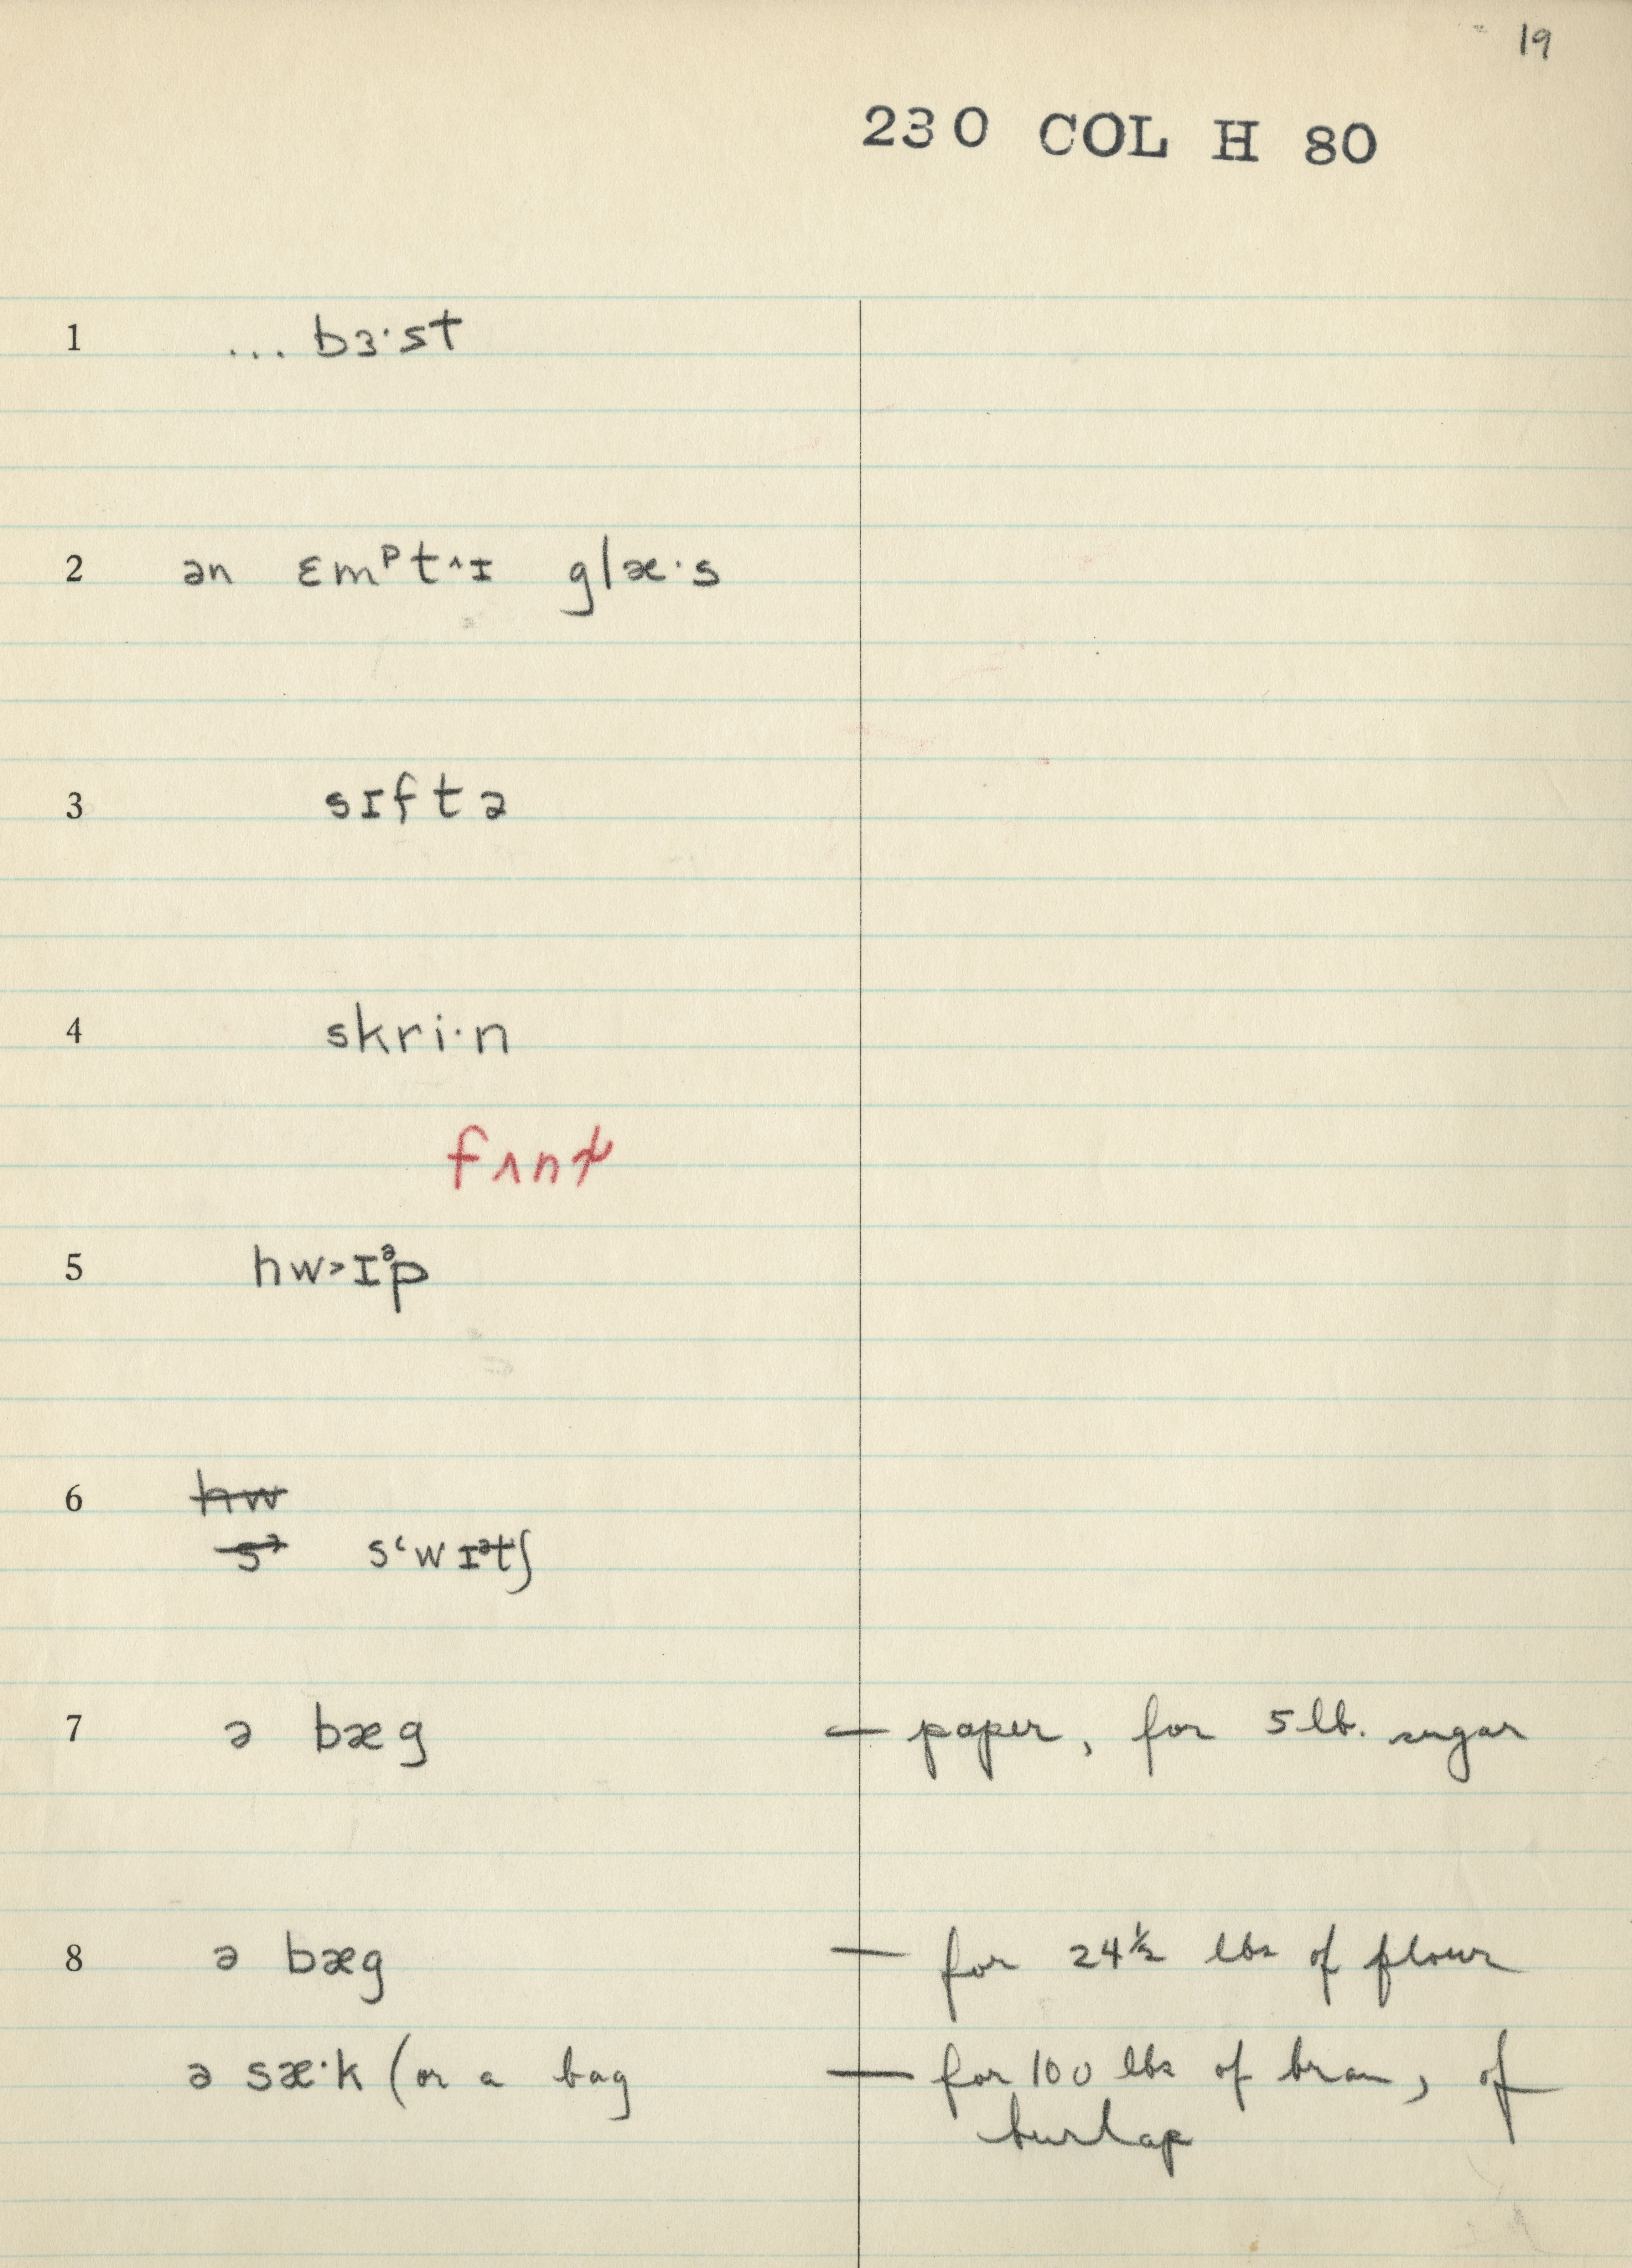 19
230 COL H 80
1 ... bɜ·st
2 ən ɛmᵖt^ɪ glæ·s
3 sɪftə
4 skri·n
5 hw>ɪᵊp
6 hw
s> s‘wɪᵊtʃ
7 ə bæg — paper, for 5 lb. sugar
8 ə bæg — for 24½ lbs of flour
ə sæ·k (or a bag — for 100 lbs of bran, of
burlap